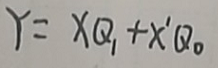 Y = XQ₁ + X'Q₀